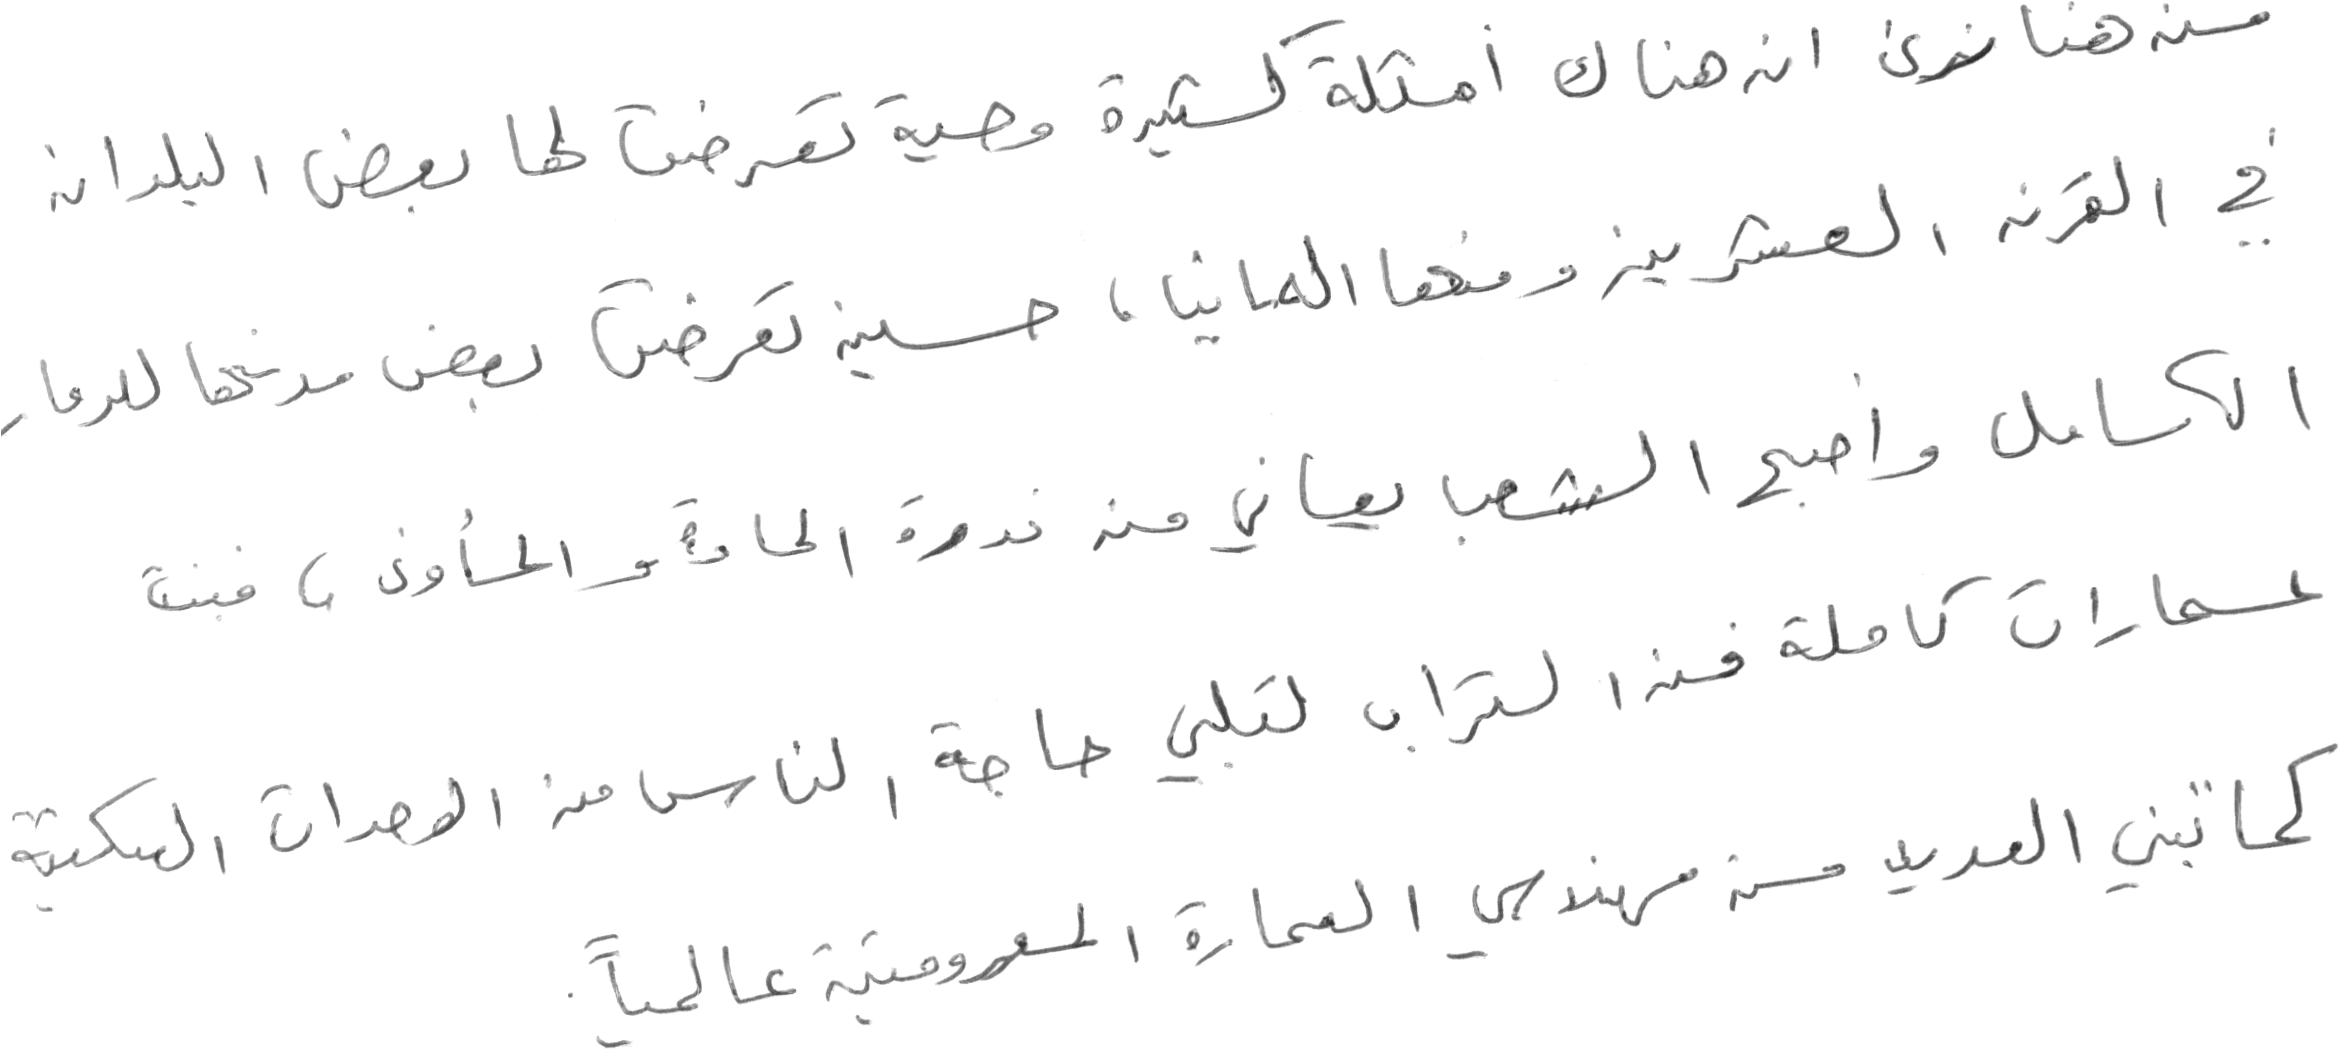 من هنا نرى ان هناك أمثلة كثيرة وحية تعرضت لها بعض البلدان
في القرن العشرين ومنها المانيا، حين تعرضت بعض مدنها للدمار
الكامل وأصبح الشعب يعاني من ندرة المادة والمأوى، فبنت
عمارات كاملة من التراب لتلبي حاجة الناس من الوحدات السكنية
كما تبنى العديد من مهندسي العمارة المعروفين عالمياً.